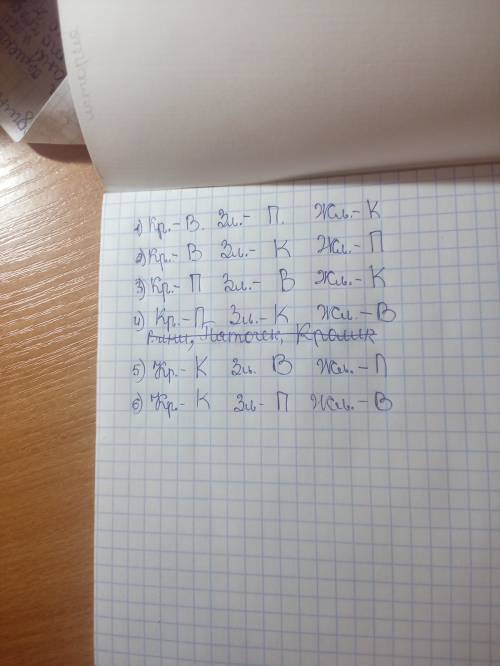 1) Кр.- В. Зл.- П. Жл.- К
2) Кр.- В Зл.- К Жл.- П
3) Кр.- П Зл.- В Жл.- К
4) Кр.- П Зл.- К Жл.- В
Вини, Пяточек, Кролик
5) Кр.- К Зл. В Жл.- П
6) Кр.- К Зл- П Жл.- В